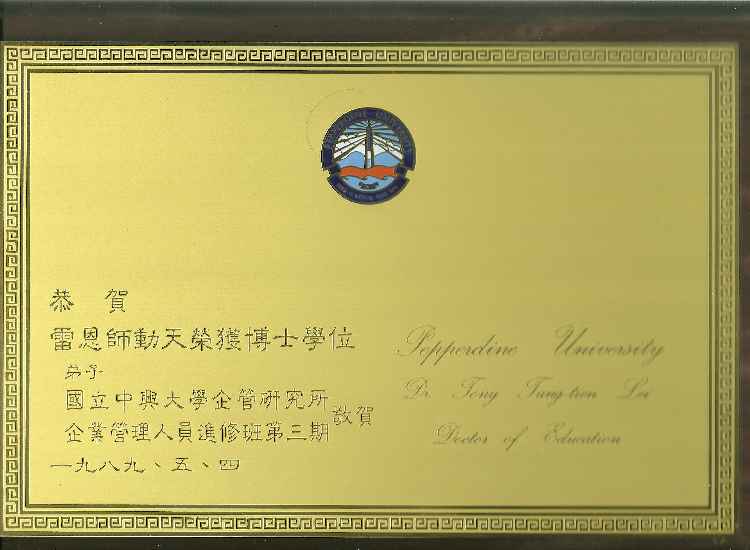 PEPPERDINE UNIVERSITY
恭賀
雷恩師動天榮獲博士學位
弟子
國立中興大學企管研究所
企業管理人員進修班第三期
敬賀
一九八九、五、四
Pepperdine University
Dr. Tony Tung-tien Lei
Doctor of Education